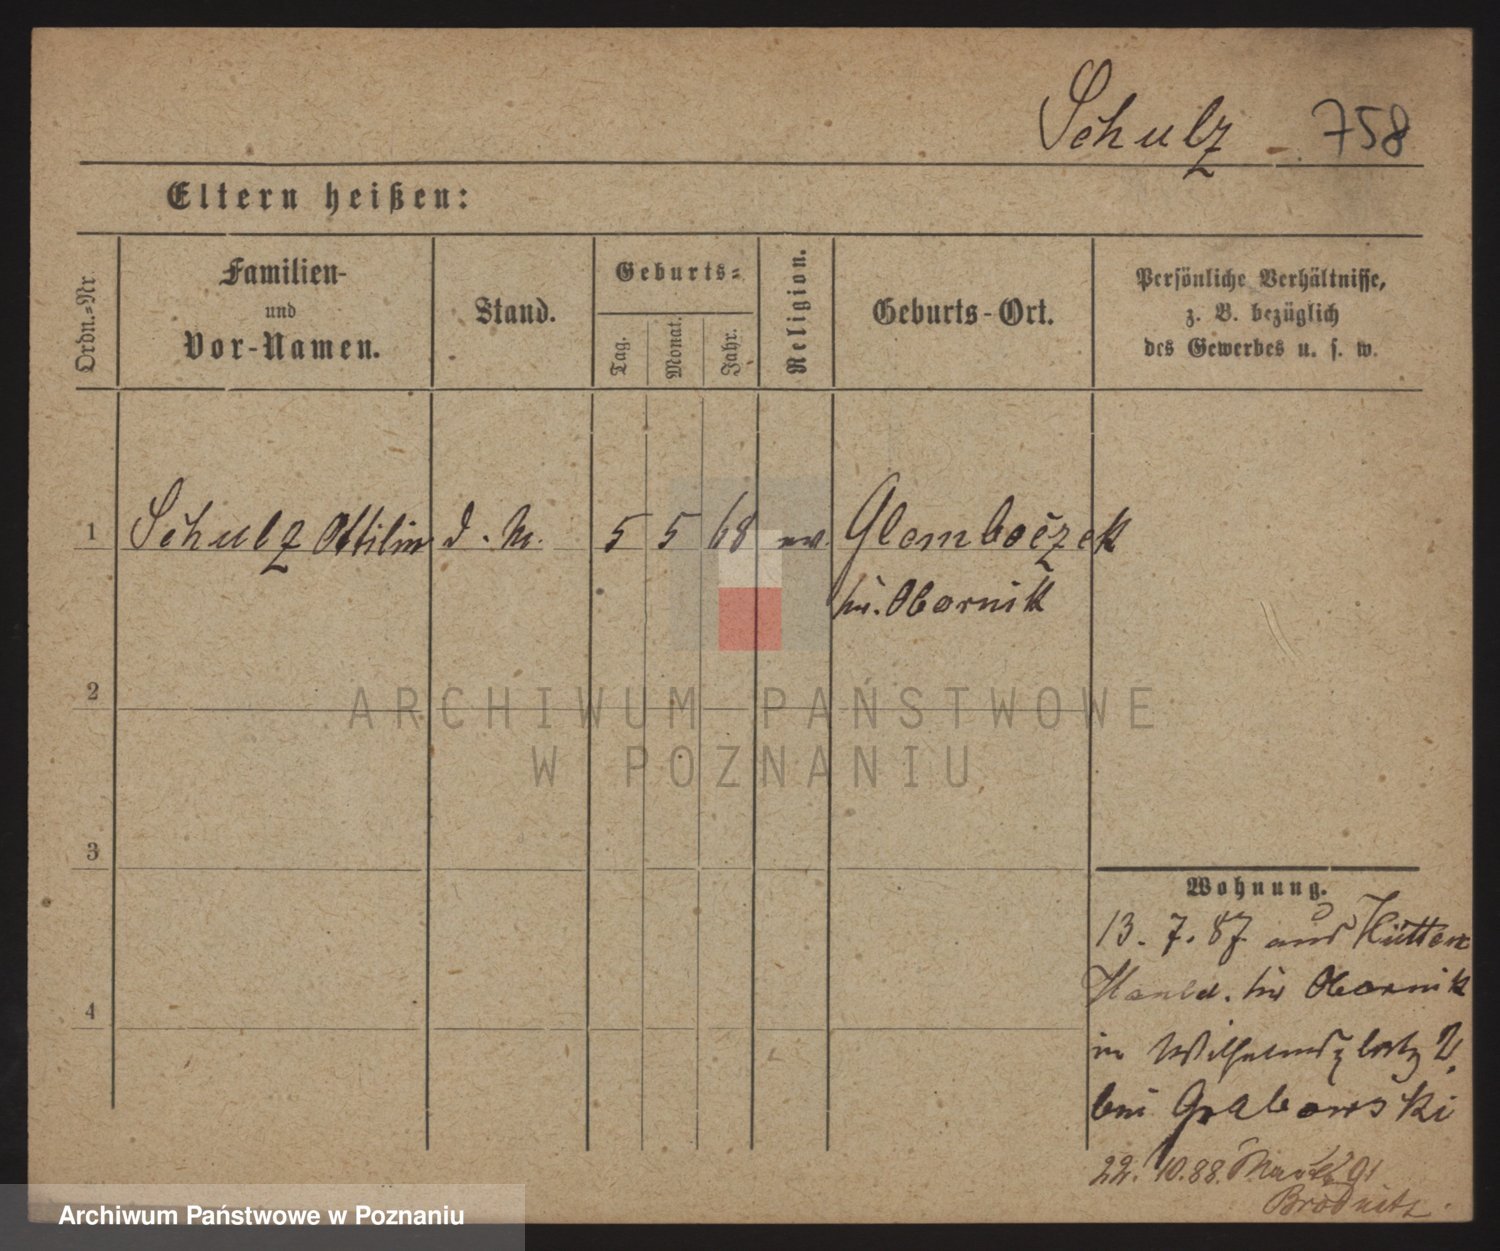 Schulz - 758
Eltern heißen:
Ordn.-Nr
Familien-
und
Vor-Namen.
Stand.
Geburts-
Tag.
Monat.
Jahr.
Religion.
Geburts-Ort.
Persönliche Verhältnisse,
z. B. bezüglich
des Gewerbes u. s. w.
1 Schulz Ottilie d. M. 5 5 68 ev. Glomboczek
Obornik
2
3
4
ARCHIWUM PAŃSTWOWE
W POZNANIU
Wohnung.
13. 7. 87 aus Hütten
Hauld. Obornik
in Wilhelmsplatz 2
bei Grabowski
22. 10. 88. 91
Brodnitz.
Archiwum Państwowe w Poznaniu